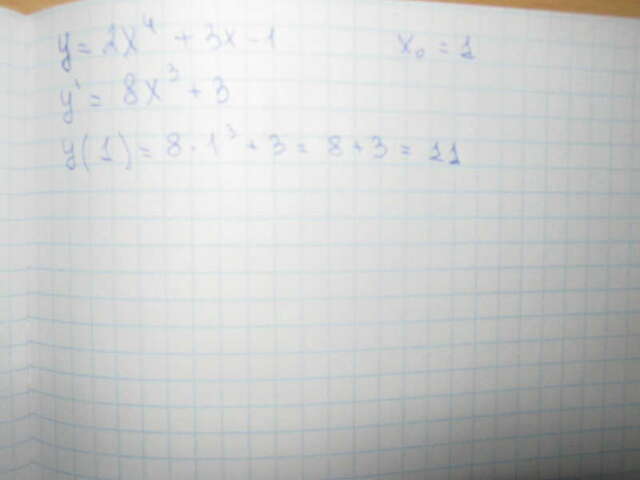 y = 2x⁴ + 3x - 1 x₀ = 1
y' = 8x³ + 3
y(1) = 8 · 1³ + 3 = 8 + 3 = 11